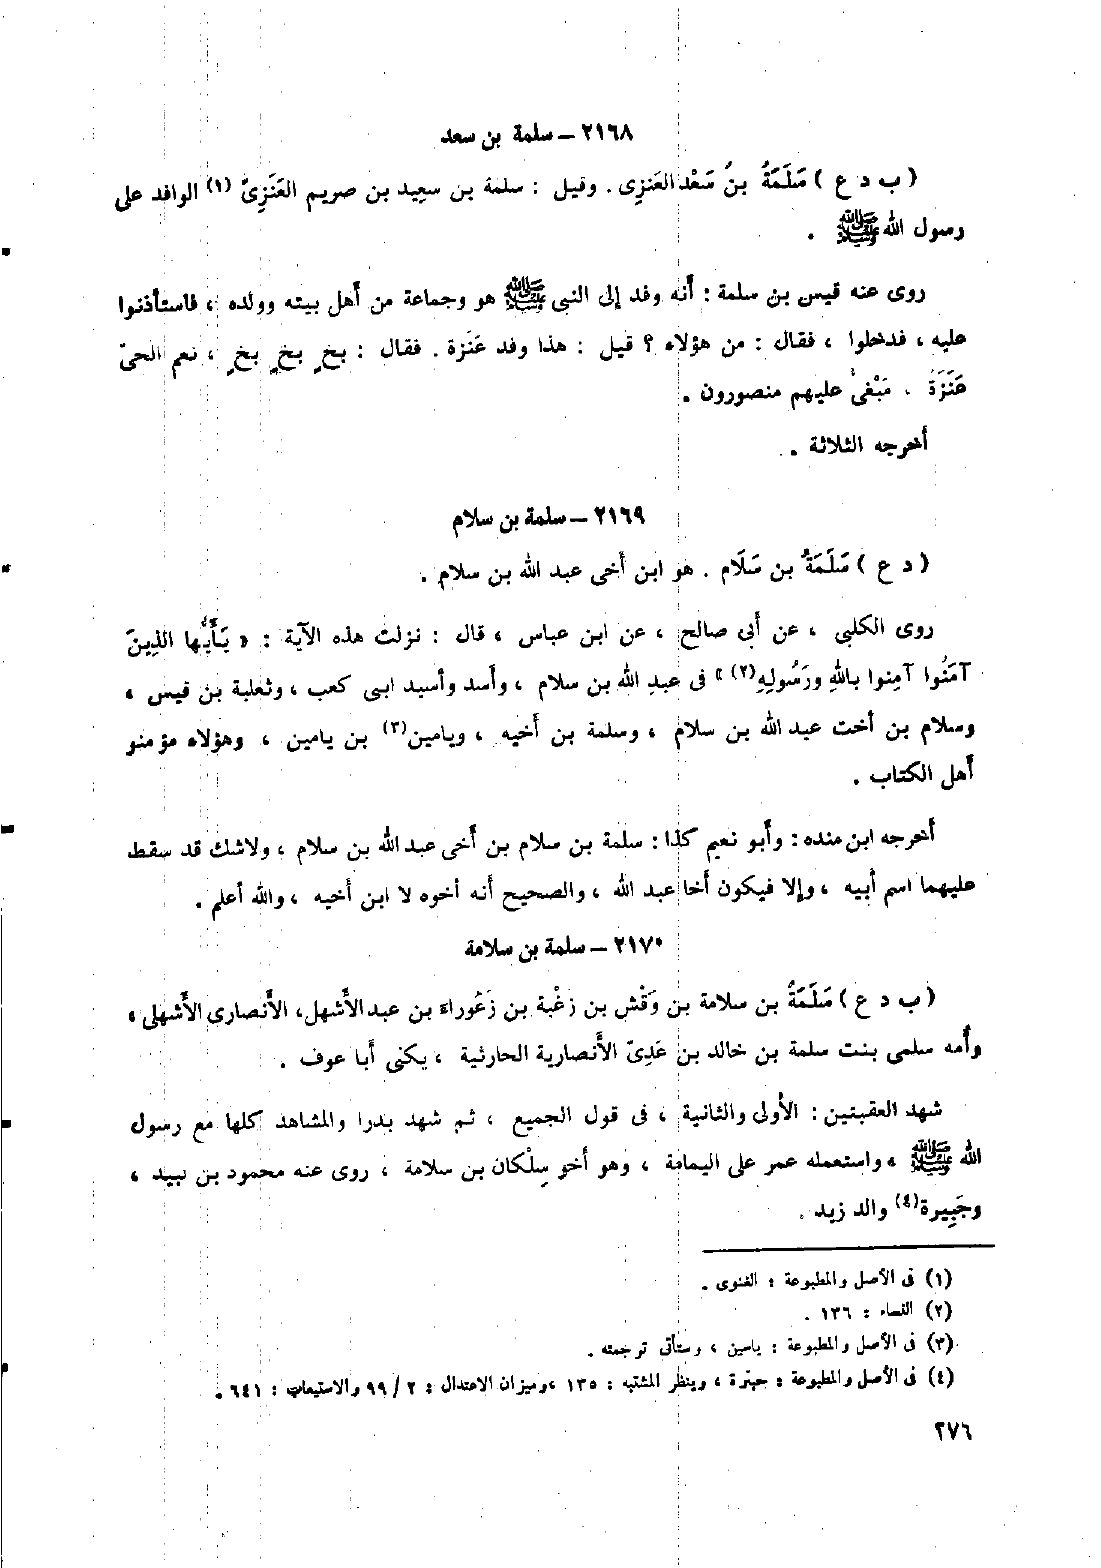 ٢١٦٨ – سلمة بن سعد
( ب د ع ) سَلَمَةُ بنُ سَعْد العَنزِى . وقيل : سلمة بن سعِيد بن صريم العَنَزِىّ (١) الوافد على
رسول الله ﷺ .
روى عنه قيس بن سلمة : أَنه وفد إلى النبى ﷺ هو وجماعة من أَهل بيته وولده ، فاستأذنوا
عليه ، فدخلوا ، فقال : من هؤلاء ؟ قيل : هذا وفد عَنَزة . فقال : بخٍ بخٍ بخٍ ، نعم الحىّ
عَنَزَةُ . مَبْغىٌ عليهم منصورون .
أَخرجه الثلاثة .
٢١٦٩ – سلمة بن سلام
( د ع ) سَلَمَةُ بن سَلَام . هو ابن أَخى عبد الله بن سلام .
روى الكلبى ، عن أَبى صالح ، عن ابن عباس ، قال : نزلت هذه الآية : « يَأَيُّها الذِينَ
آمَنُوا آمِنوا باللهِ ورَسُولِهِ (٢) » فى عبدِ الله بن سلام ، وأَسد وأسيد ابنى كعب ، وثعلبة بن قيس ،
وسلام بن أخت عبد الله بن سلام ، وسلمة بن أَخيه ، ويامين (٣) بن يامين ، وهؤلاء مؤمنو
أَهل الكتاب .
أَخرجه ابن منده : وأَبو نعيم كذا : سلمة بن سلام بن أَخى عبد الله بن سلام ، ولاشك قد سقط
عليهما اسم أَبيه ، وإلا فيكون أَخا عبد الله ، والصحيح أنه أخوه لا ابن أَخيه ، والله أعلم .
٢١٧٠ – سلمة بن سلامة
( ب د ع ) سَلَمَةُ بن سلامة بن وَقْش بن زغْبة بن زَعُوراءَ بن عبد الأَشهل، الأَنصارى الأَشهلى ،
وأُمه سلمى بنت سلمة بن خالد بن عَدِىّ الأَنصارية الحارثية ، يكنى أَبا عوف .
شهد العقبتين : الأُولى والثانية ، فى قول الجميع ، ثم شهد بدرا والمشاهد كلها مع رسول
الله ﷺ ، واستعمله عمر على اليمامة ، وهو أَخو سِلْكان بن سلامة ، روى عنه محمود بن لبيد ،
وجَبِيرة (٤) والد زيد .
(١) فى الأصل والمطبوعة : الغنوى .
(٢) النساء : ١٣٦ .
(٣) فى الأصل والمطبوعة : ياسين ، وستأتى ترجمته .
(٤) فى الأصل والمطبوعة : حبترة ، وينظر المشتبه : ١٣٥ ، وميزان الاعتدال : ٢ / ٩٩ والاستيعاب : ٦٤١ .
٢٧٦